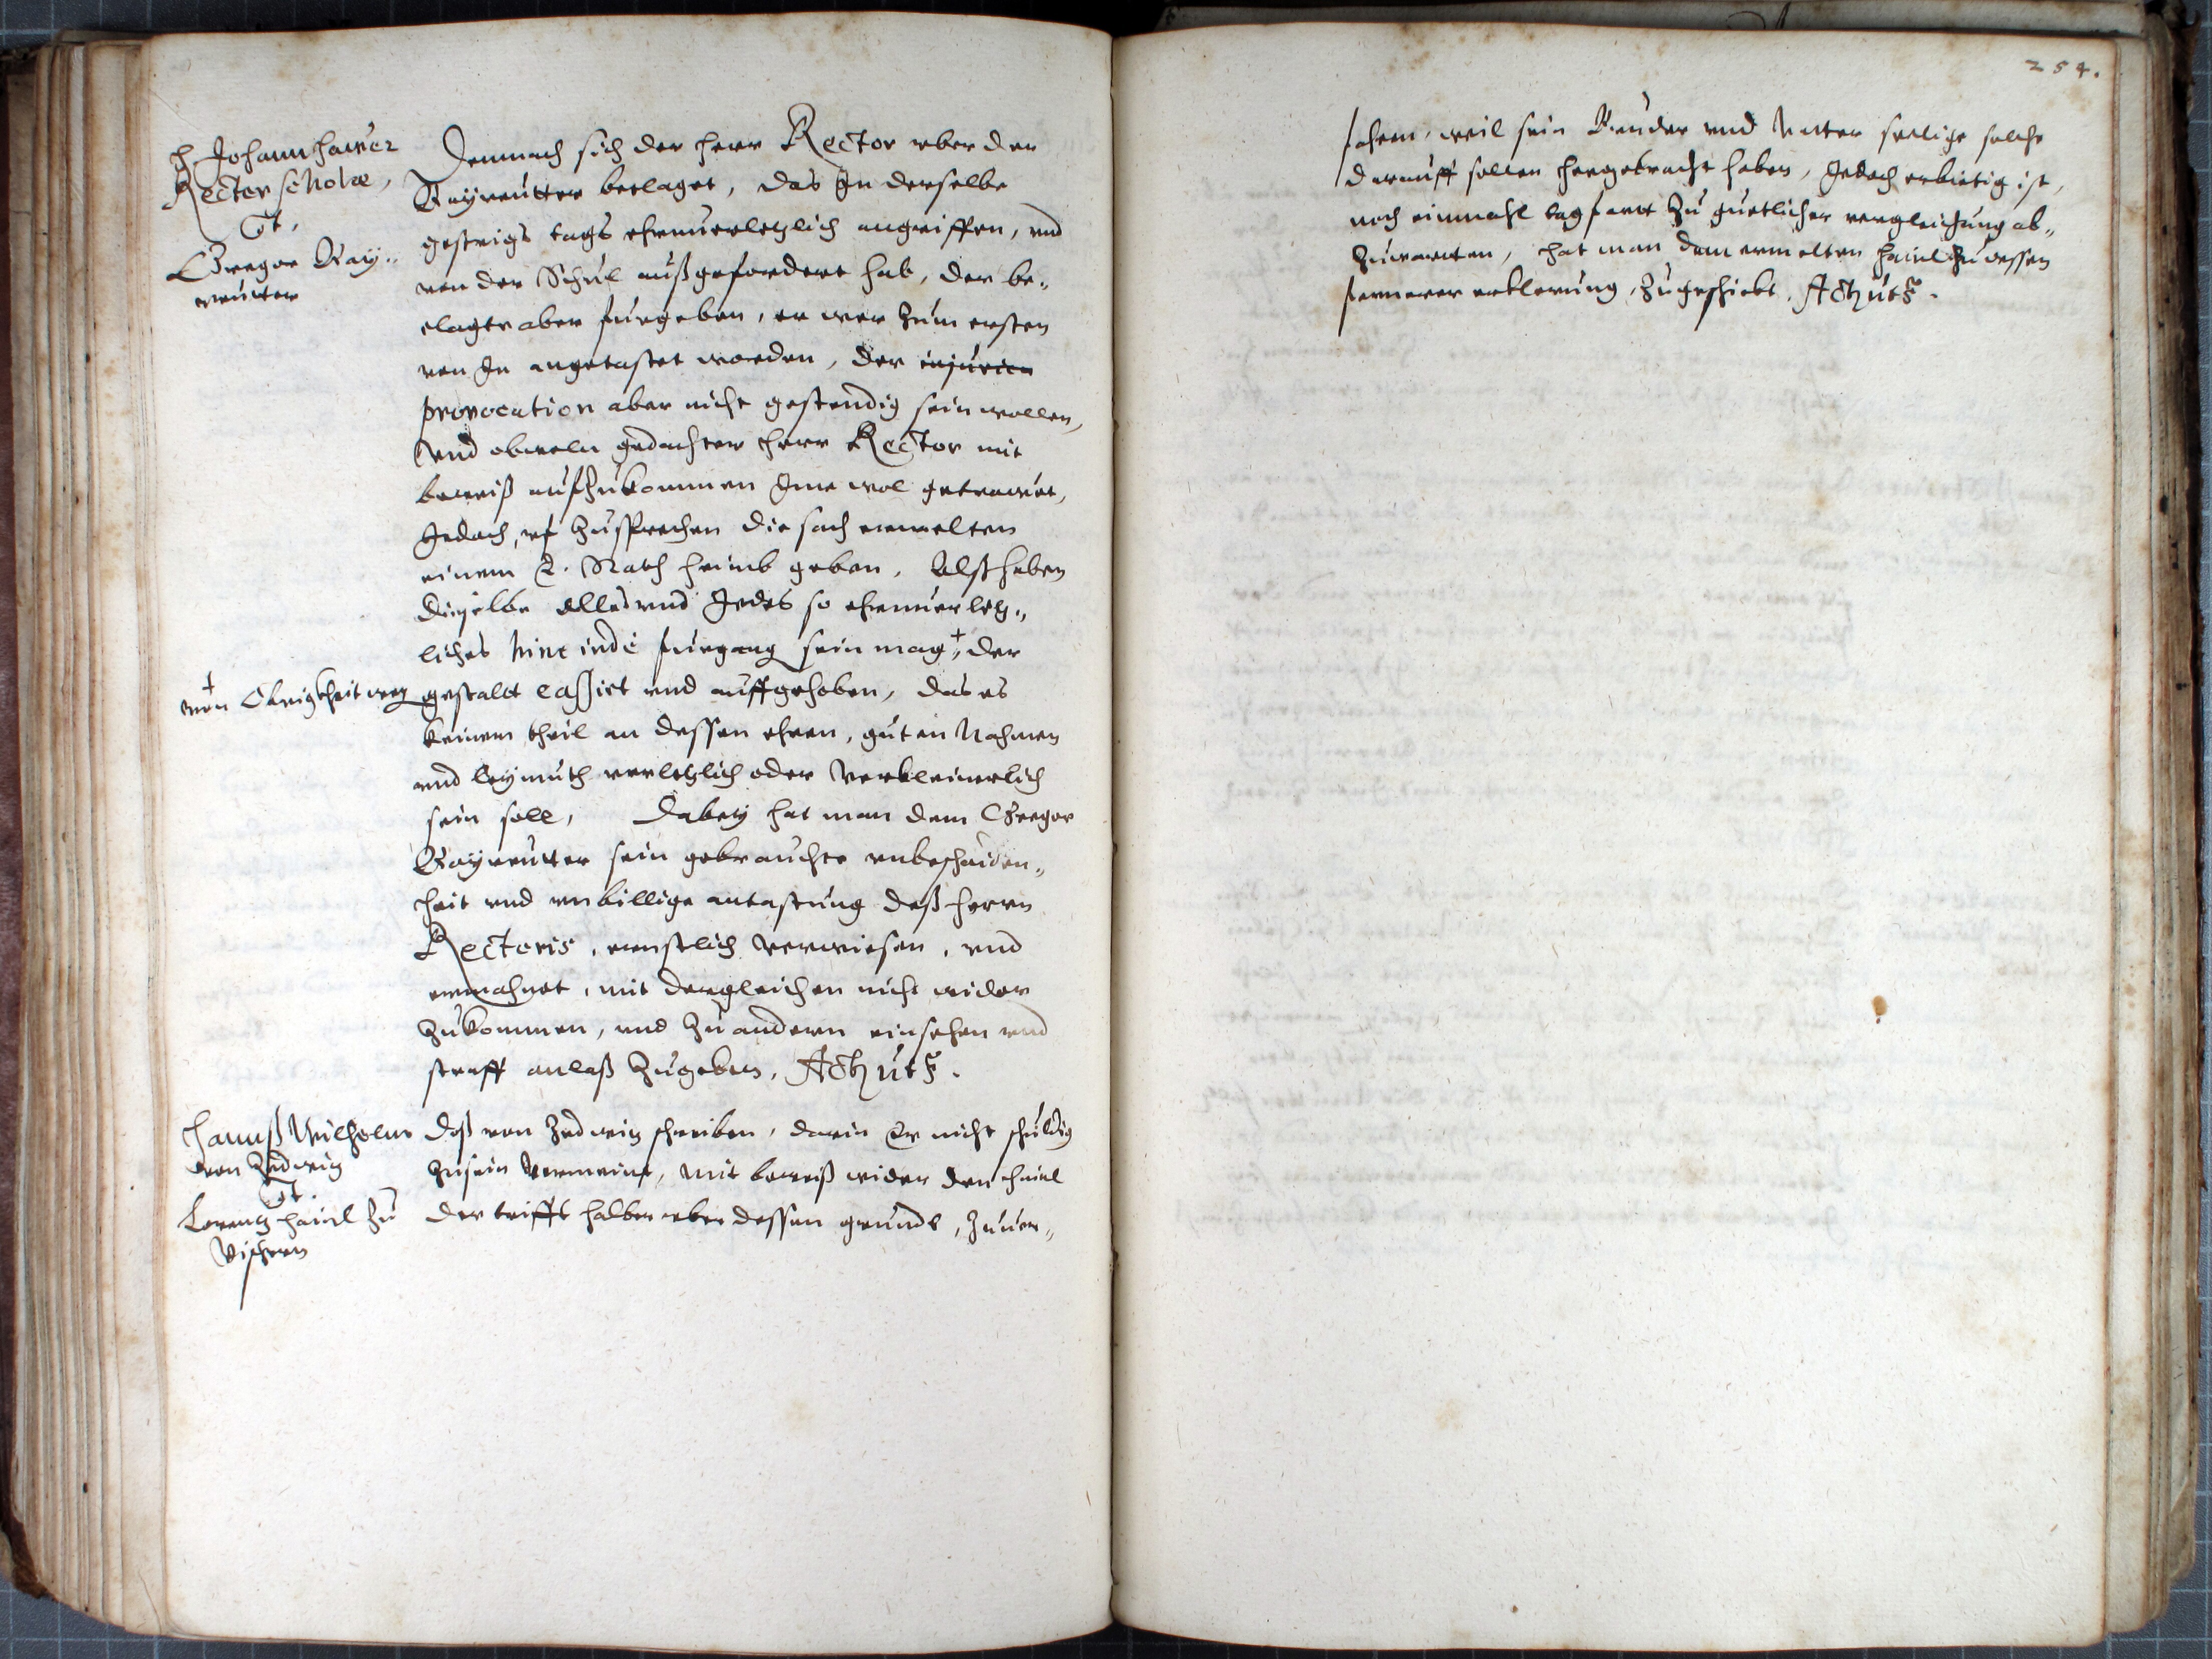 H Johann Hawer
Rector scholae,
Ct.
Gregor Bay„
reutter
Demnach sich der Herr Rector vber den
Bayreutter beclaget, das In derselbe
gestrigs tags ehrnuerletzlich angriffen, vnd
von der Schul außgefordert hab, der be„
clagte aber fürgeben, er wer zum ersten
von In angetastet worden, der injurien
provocation aber nicht gestendig sein wollen,
Vnd obweln gedachter Herr Rector mit
beweiß aufzukommen Ime wol getrawet,
Jedoch, vf zusprechen die sach ermelten
einem E. Rath heimb geben, Alß haben
dieselbe alles vnd Jedes so ehrnuerletz„
liches hinc inde fürgang sein mag +, der
+ von Obrigkheit weg
gestaldt cassirt vnd auffgehoben, das es
keinem theil an dessen ehren, guten Nahmen
vnd leymuth verletzlich oder Verkleinerlich
sein soll, Dabey hat man dem Gregor
Bayreutter sein gebrauchte vnbeschaiden„
heit vnd vnbillige antastung deß Herrn
Rectoris, ernstlich verwiesen, vnd
ermahnet, mit dergleichen nicht wider
zukommen, vnd zu andern einsehen vnd
straff anlaß zugeben, Act. ut s.
Hannß Wilhelm
von Zedwitz
Ct
Lorentz Hainl zu
Vischern
Deß von Zedwitz schreiben, darin Er nicht schuldig
zusein Vermeint, mit beweiß wider den Hainl
der trifft halben vber dessen grundt, zuuer„
254.
fahrn, weil sein Bruder vnd Vatter seelige solche
darauff sollen hergebracht haben, Jedoch erbietig ist,
noch einmahl tagfart zu guetlicher vergleichung ab„
zuwartten, hat man dem ermelten Hainl zu dessen
fernerer erklerung, zugeschickt. Act. ut s.